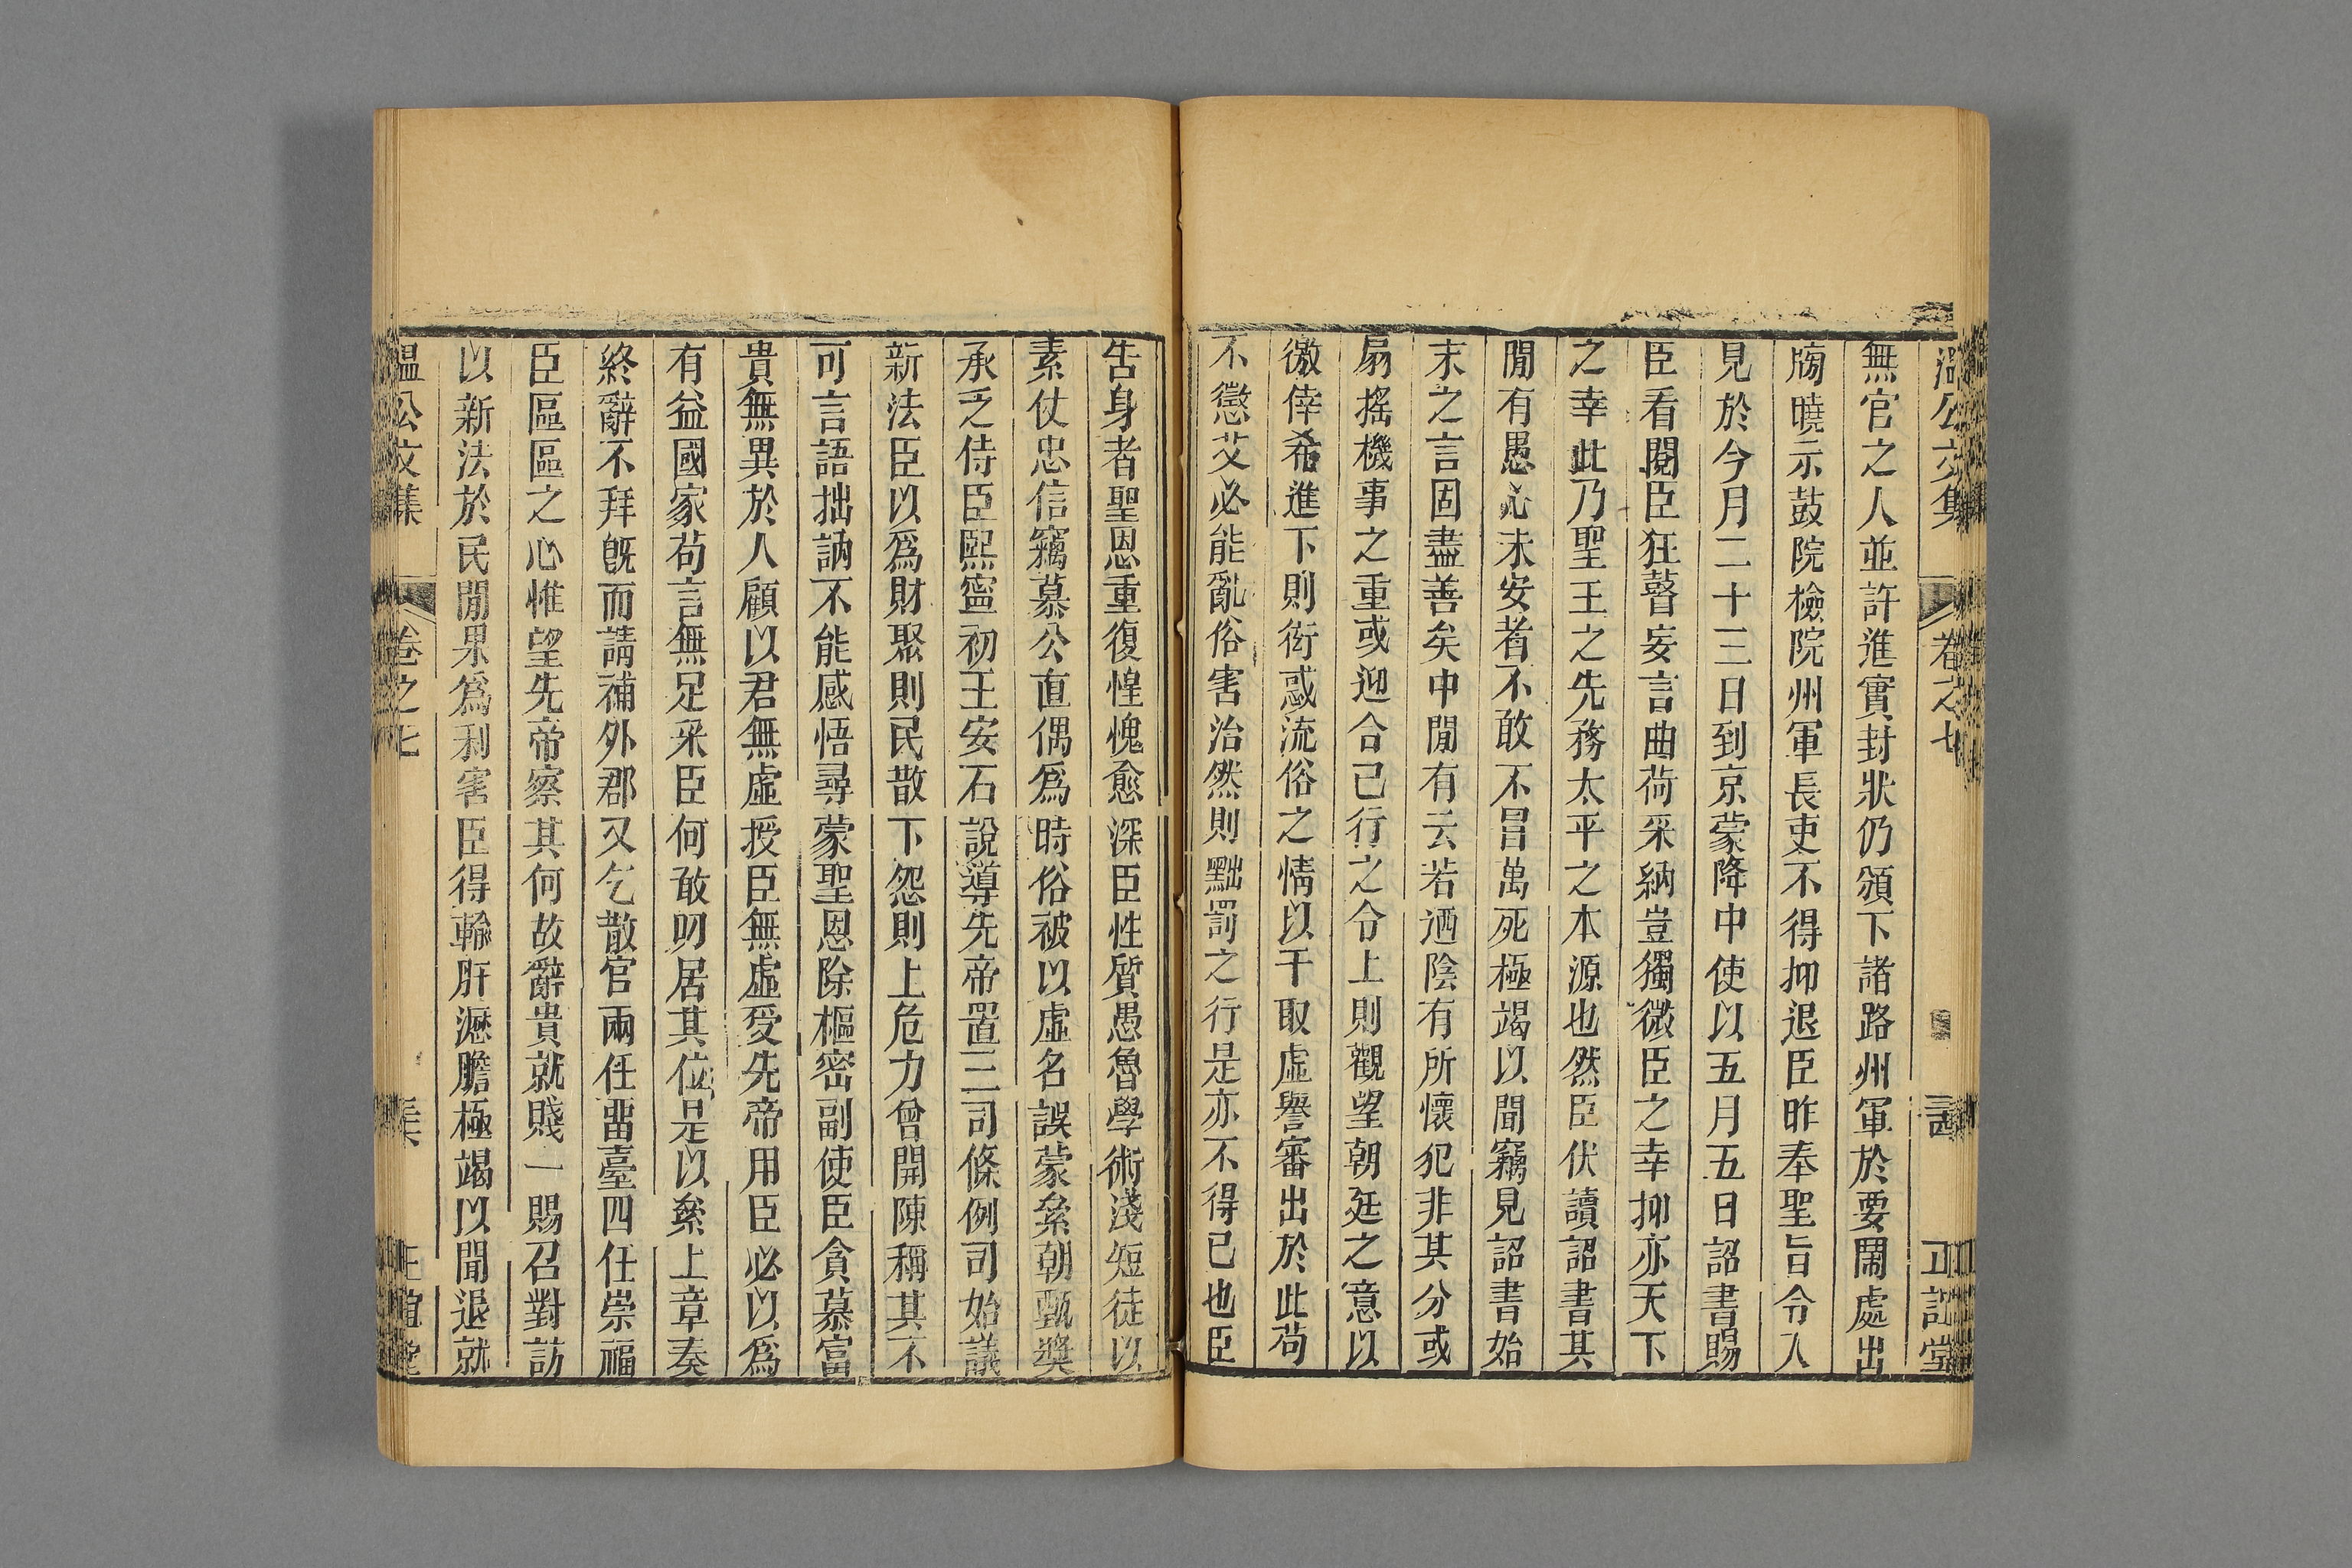 溫公文集 卷之七 正誼堂
無官之人並許進實封狀仍頒下諸路州軍於要鬧處出
牓曉示鼓院檢院州軍長吏不得抑退臣昨奉聖旨令入
見於今月二十三日到京蒙降中使以五月五日詔書賜
臣看閱臣狂瞽妄言曲荷采納豈獨微臣之幸抑亦天下
之幸此乃聖王之先務太平之本源也然臣伏讀詔書其
閒有愚心未安者不敢不冒萬死極竭以聞竊見詔書始
末之言固盡善矣中閒有云若迺陰有所懷犯非其分或
扇搖機事之重或迎合已行之令上則觀望朝廷之意以
徼倖希進下則衒惑流俗之情以干取虛譽審出於此苟
不懲艾必能亂俗害治然則黜罰之行是亦不得已也臣
告身者聖恩重復惶愧愈深臣性質愚魯學術淺短徒以
素仗忠信竊慕公直偶爲時俗被以虛名誤蒙絫朝甄奬
承乏侍臣熙寧初王安石說導先帝置三司條例司始議
新法臣以爲財聚則民散下怨則上危力曾開陳稱其不
可言語拙訥不能感悟尋蒙聖恩除樞密副使臣貪慕富
貴無異於人顧以君無虛授臣無虛受先帝用臣必以爲
有益國家苟言無足采臣何敢叨居其位是以絫上章奏
終辭不拜旣而請補外郡又乞散官兩任畱臺四任崇福
臣區區之心惟望先帝察其何故辭貴就賤一賜召對訪
以新法於民閒果爲利害臣得輸肝瀝膽極竭以聞退就
溫公文集 卷之七 正誼堂